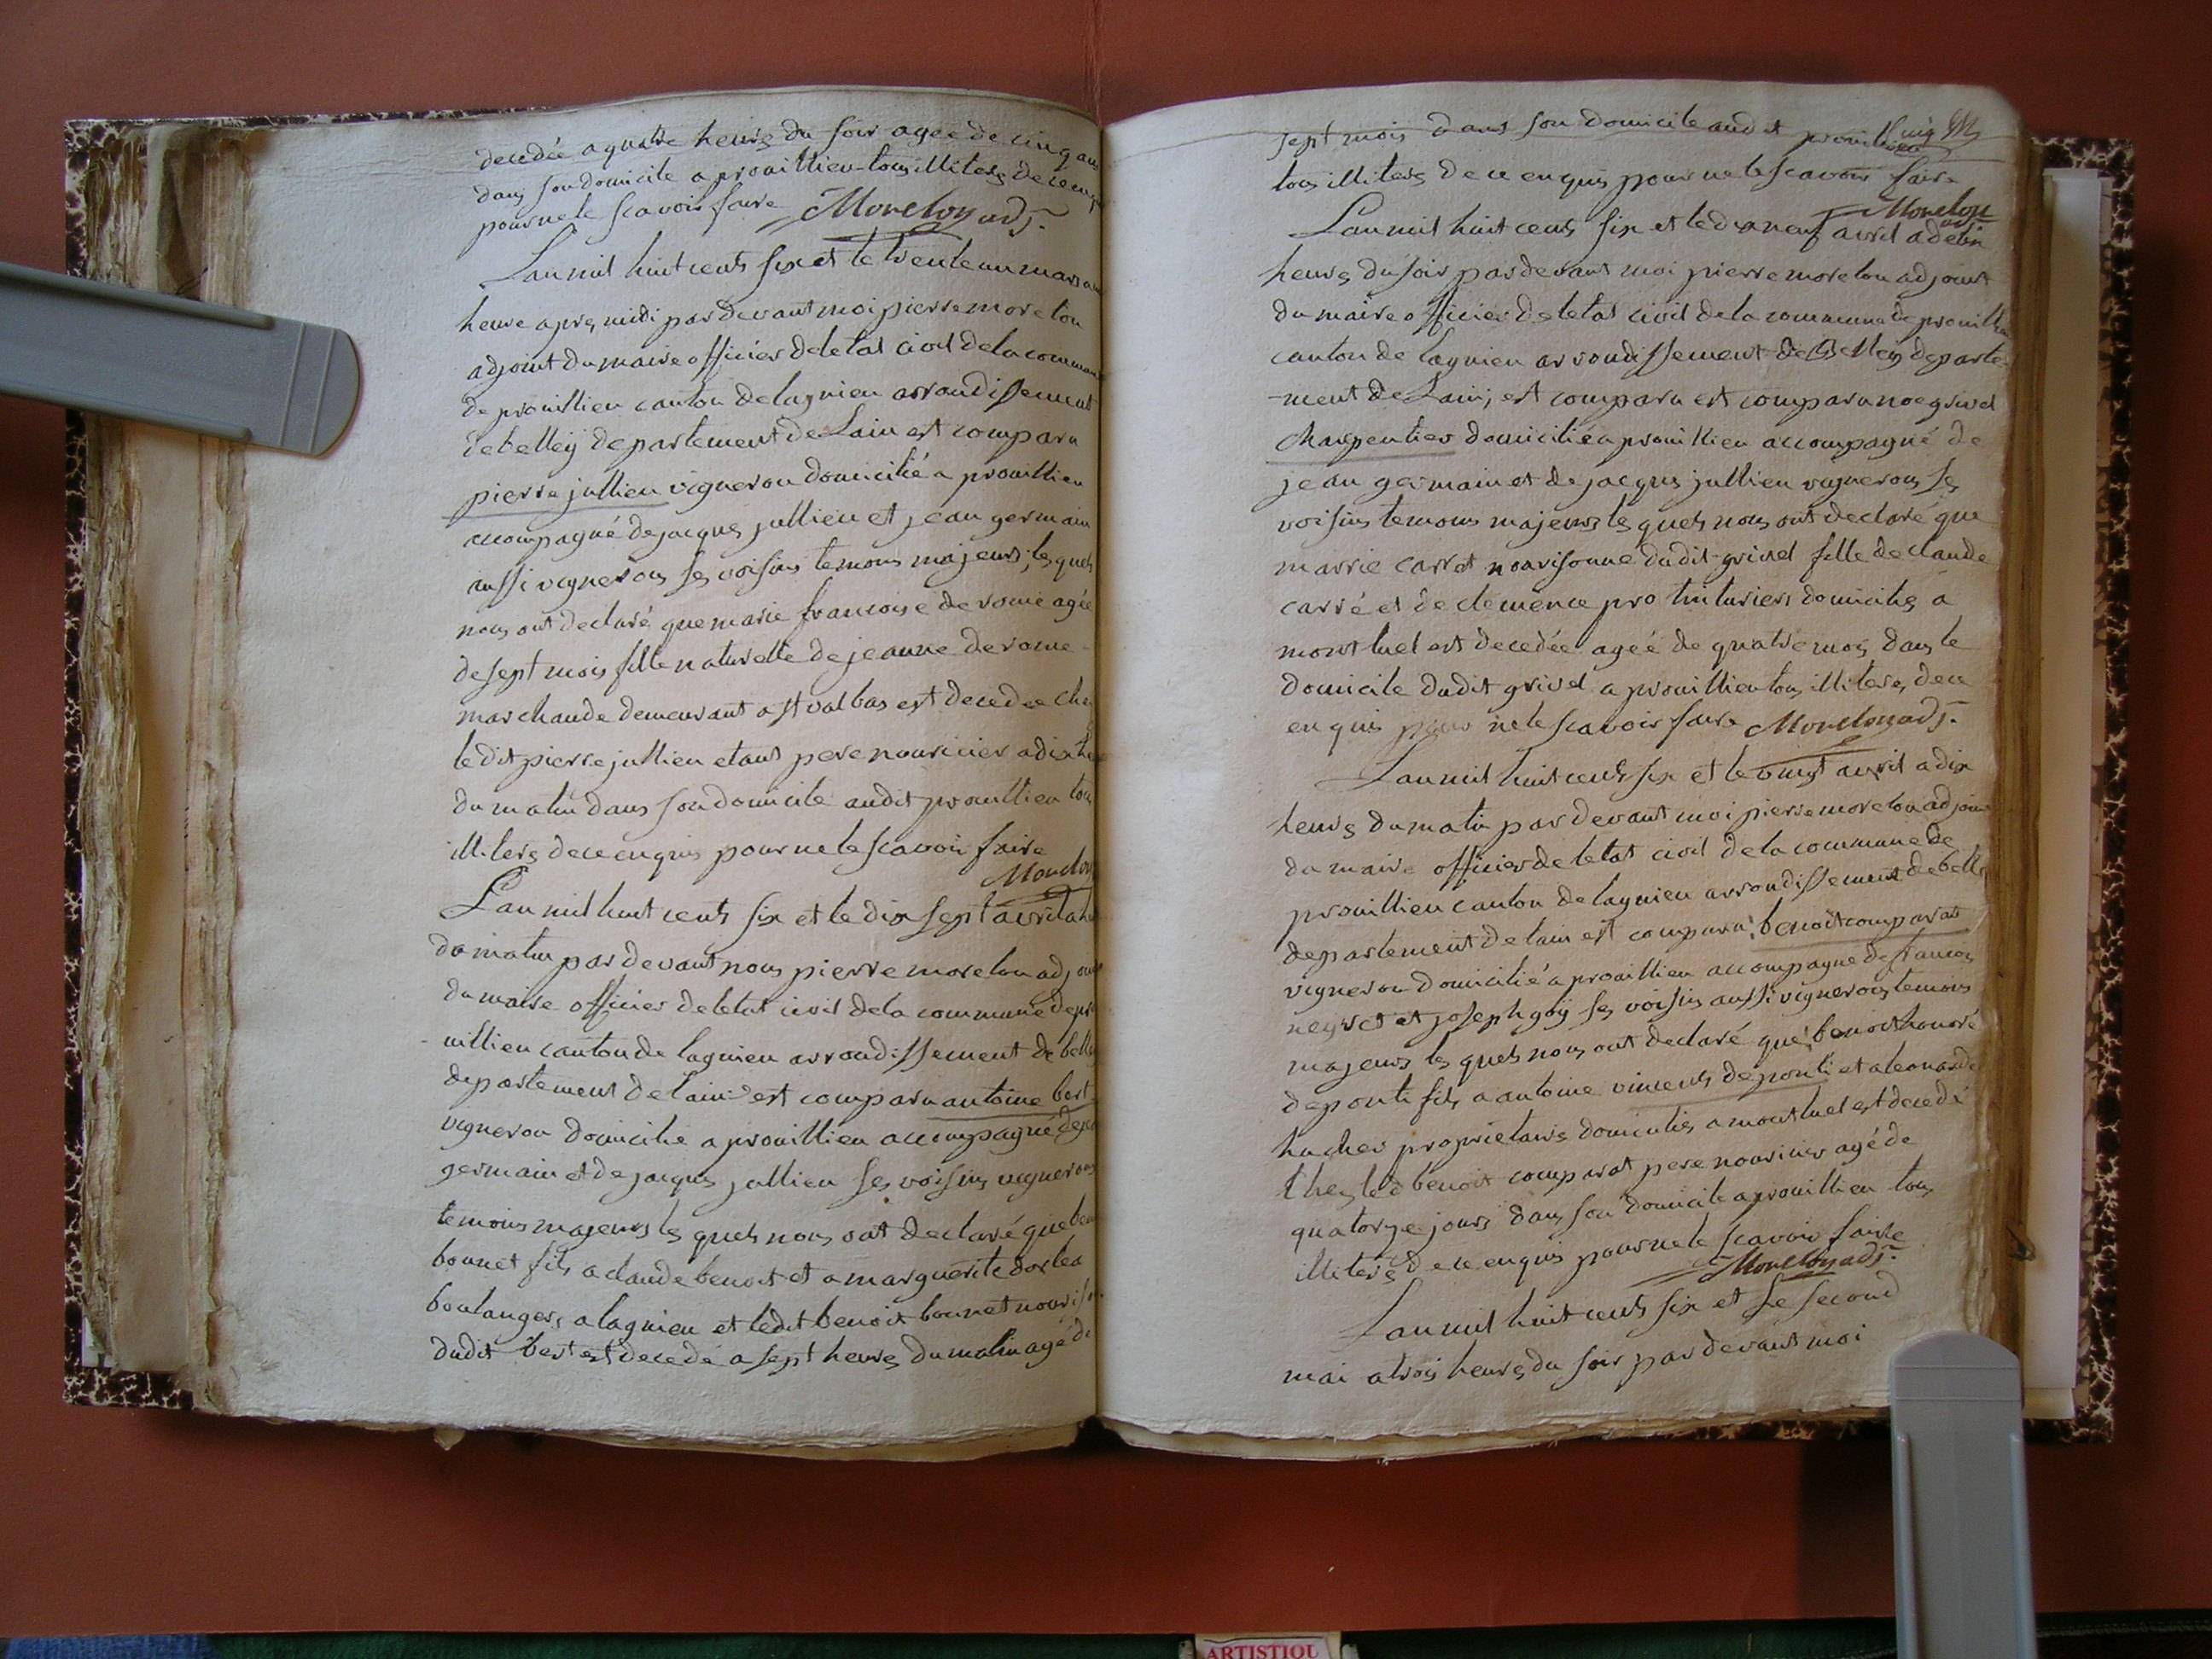 decedée a quatre heures du soir agée de cinq ans
dans son domicile a prouillieu tous illiteres de ce enquis
pour ne le scavoir faire Moreton adj.
Lan mil huit cents six et le trente un mars a une
heure apres midi par devant moi pierre moreton
adjoint du maire officier de letat civil de la commune
de prouillieu canton de lagnieu arrondissement
de belleÿ departement de Lain est comparu
pierre jullien vigneron domicilié a prouillieu
accompagné de jacques jullien et jean germain
aussi vignerons ses voisins temoins majeurs, les quels
nous ont declaré que marie francoise derome agée
de sept mois fille naturelle de jeanne derome
marchande demeurant a st valbas est decedée ches
le dit pierre jullien etant pere nouricier a dix he
du matin dans son domicile audit prouillieu tous
illiteres de ce enquis pour ne le scavoir faire
Moreton
Lan mil huit cents six et le dix sept avril a
du matin par devant nous pierre moreton adjoint
du maire officier de letat civil de la commune de pro
uillieu canton de lagnieu arrondissement de belley
departement de lain est comparu antoine bert
vigneron domicilié a prouillieu accompagné de jean
germain et de jacques jullien ses voisins vignerons
temoins majeurs les quels nous ont declaré que ben
bonnet fils a claude benoit et a marguerite
boulangers a lagnieu et ledit benoit bonnet nouriso
dudit bert est decedé a sept heures du matin agé de
sept mois dans son domicile audit prouillieu
tous illiteres de ce enquis pour ne le scavoir faire
Moreton
adj.
Lan mil huit cents six et le dix neuf avril a
heures du soir par devant moi pierre moreton adjoint
du maire officier de letat civil de la commune de prouillieu
canton de lagnieu arrondissement de Belleÿ departe-
-ment de Lain, est comparu est comparu noe grivel
charpentier domicilié a prouillieu accompagné de
jean germain et de jacques jullien vignerons ses
voisins temoins majeurs les quels nous ont declaré que
marrie carret nourisonne dudit grivel fille de claude
carré et de clemence pro tinturiers domiciliés a
montluel est decedée ageé de quatre mois dans le
domicile dudit grivel a prouillieu tous illiteres, de ce
enquis pour ne le scavoir faire Moreton adj.
Lan mil huit cents six et le vingt avril a dix
heures du matin par devant moi pierre moreton adjoint
du maire officier de letat civil de la commune de
prouillieu canton de lagnieu arrondissement de belley
departement de lain est comparu benoit comparat
vigneron domicilié a prouillieu accompagné de francois
negret et joseph goÿ ses voisins aussi vignerons temoins
majeurs les quels nous ont declaré que benoit honoré
deponti fils a antoine vincents deponti et a leonarde
hucher proprietaires domiciliés a montluel est decedé
ches led benoit comparat pere nouricier agé de
quatorze jours dans son domicile a prouillieu tous
illiteres de ce enquis pour ne le scavoir faire
Moreton adj.
Lan mil huit cents six et le second
mai a trois heures du soir par devant moi
ARTISTIQU